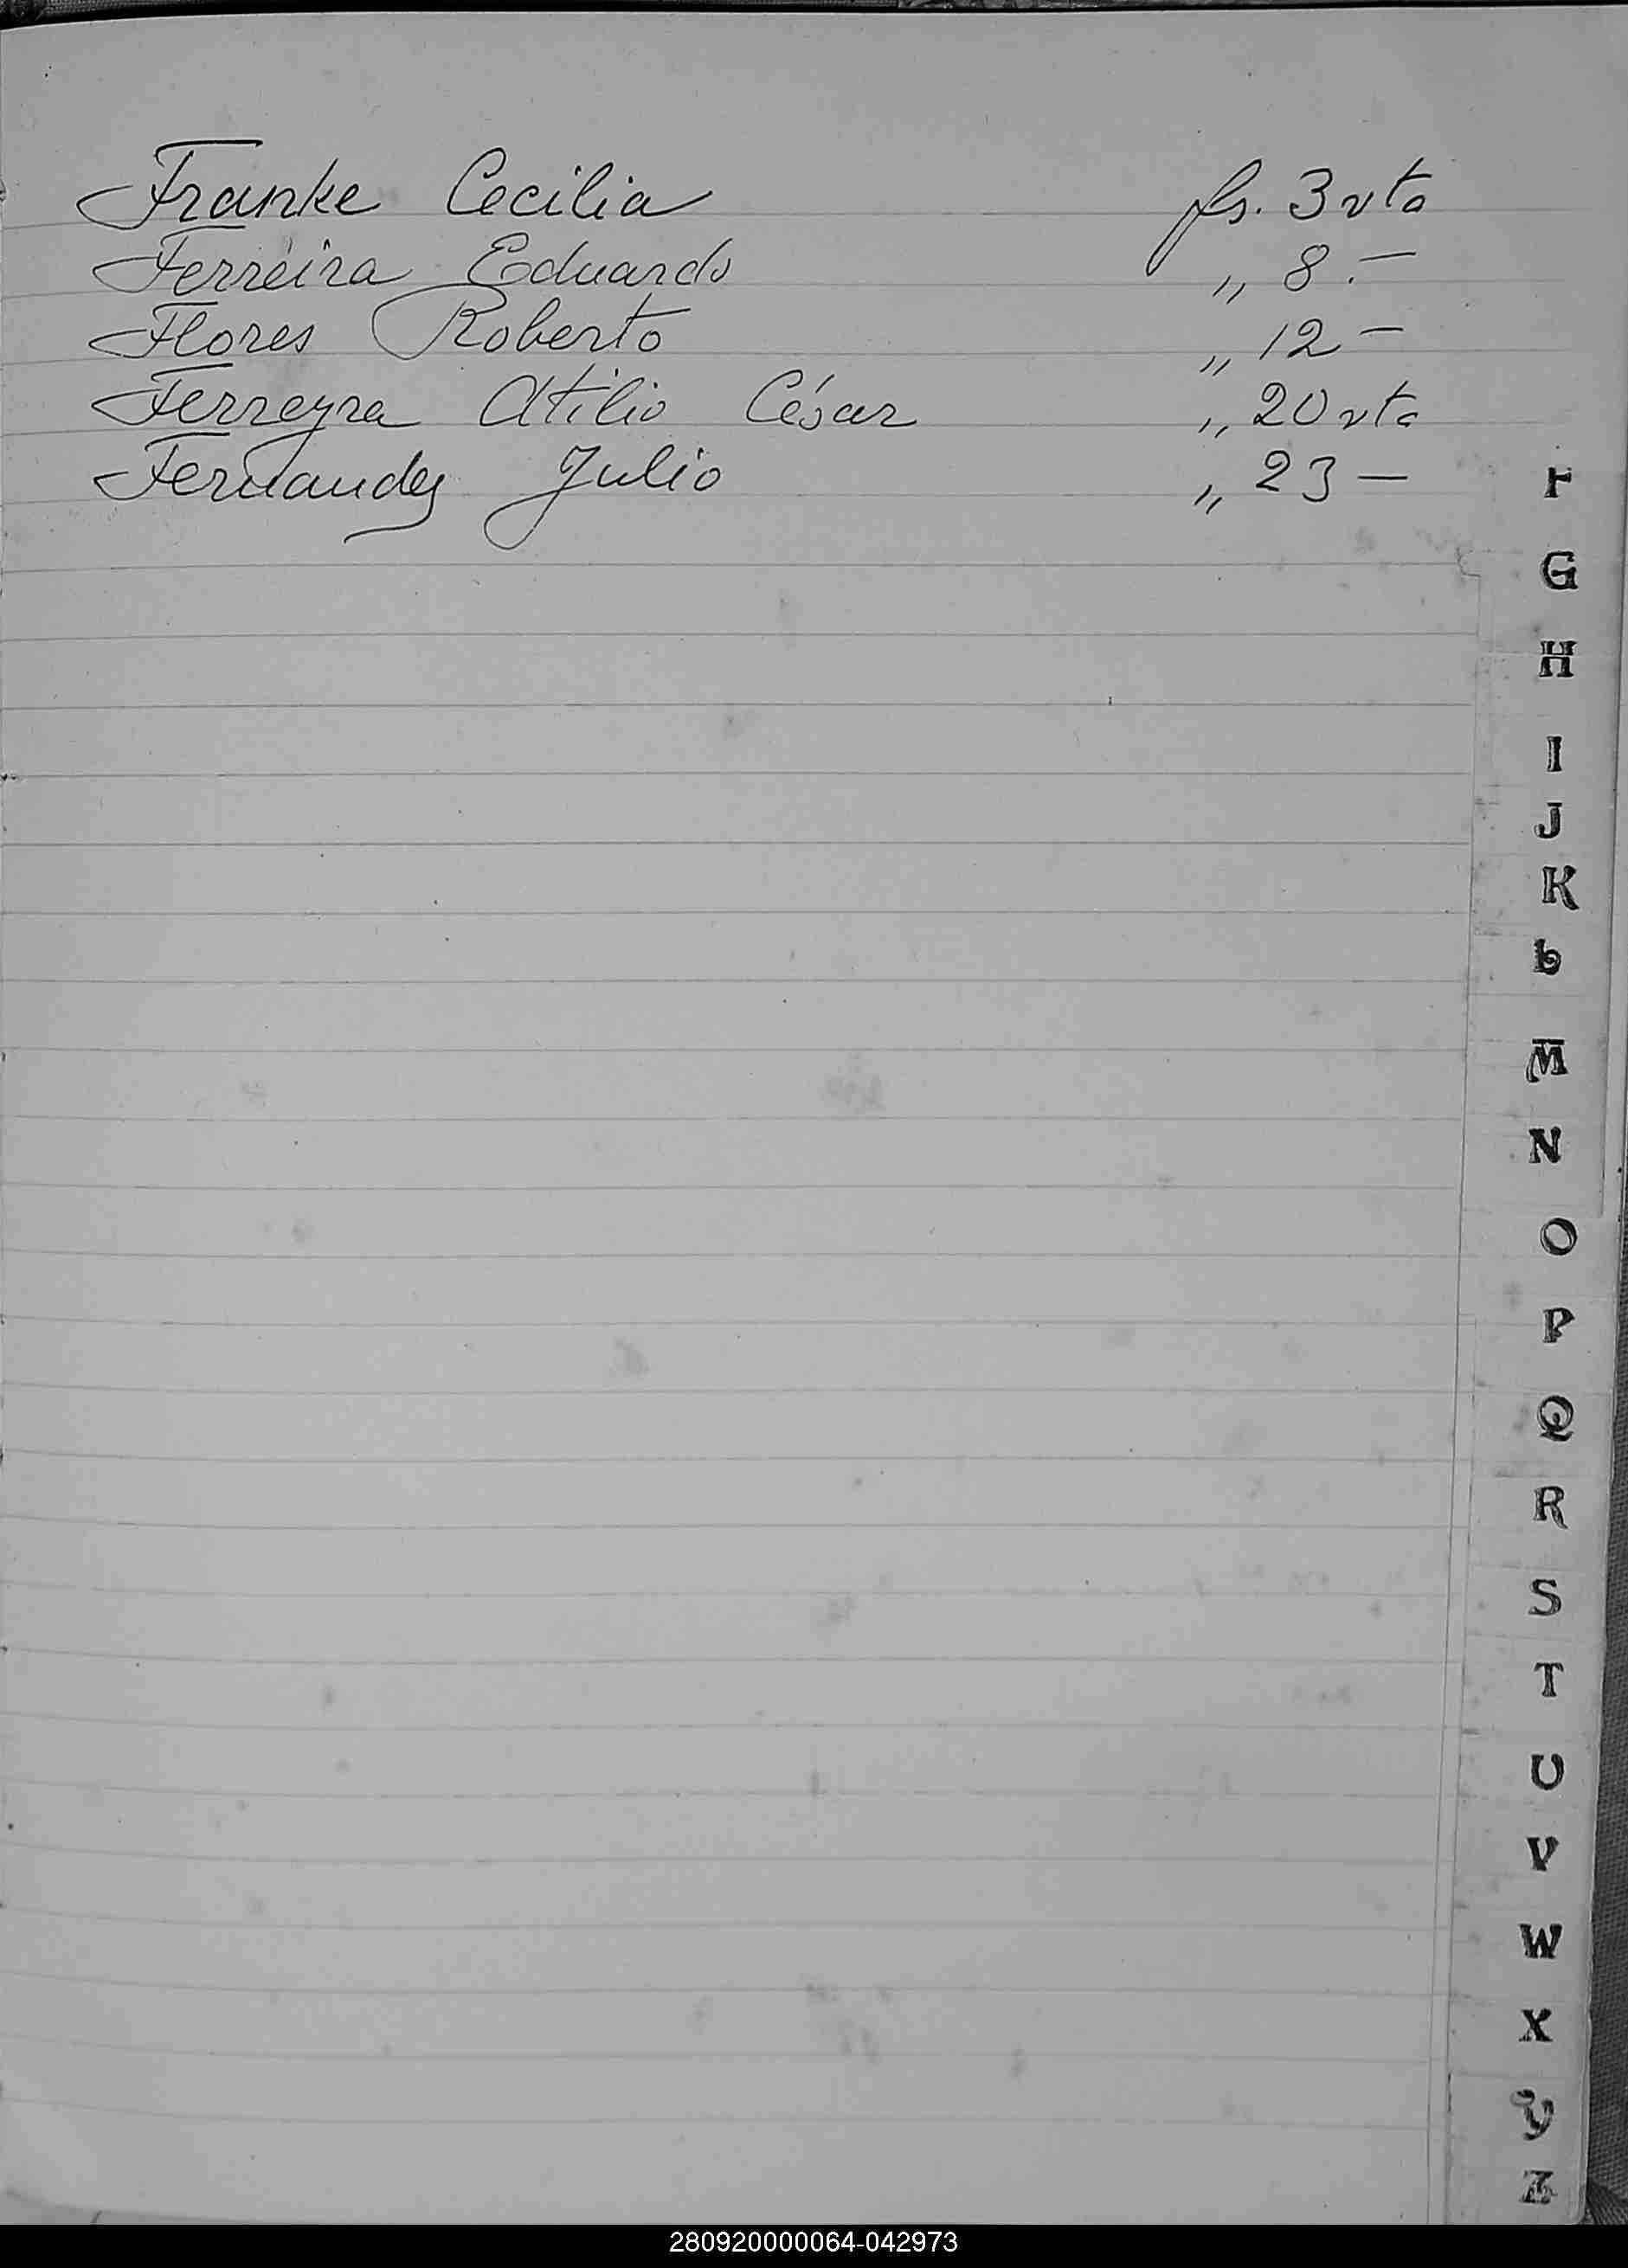 Franke Cecilia fs. 3 vta
Ferreira Eduardo „ 8.—
Flores Roberto „ 12 —
Ferreyra Atilio César „ 20 vta
Fernandez Julio „ 23 —
F
G
H
I
J
K
L
M
N
O
P
Q
R
S
T
U
V
W
X
Y
Z
280920000064-042973